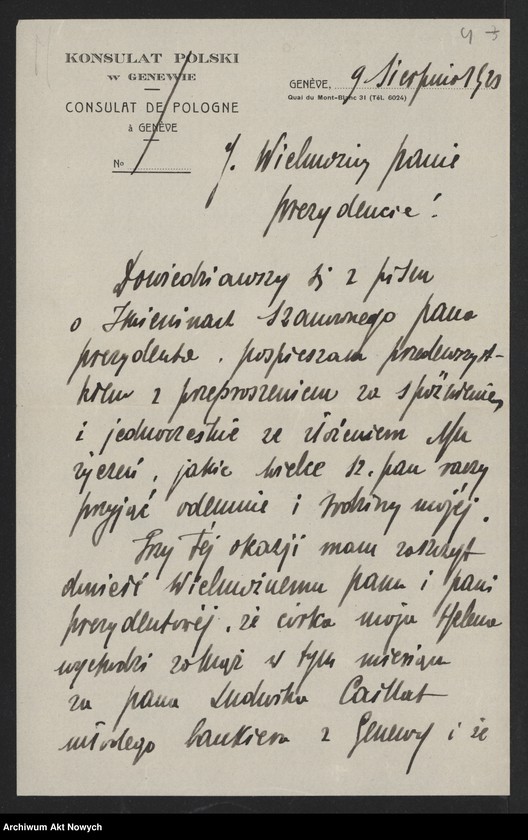 4 3
KONSULAT POLSKI
W GENEWIE
CONSULAT DE POLOGNE
à GENÈVE
No
GENÈVE, 9 Sierpnia 1920
Quai du Mont-Blanc 31 (Tél. 6024)
J. Wielmożny panie
prezydencie!
Dowiedziawszy się z pism
o Imieninach Szanownego pana
prezydenta, pospieszam przedewszyst-
kiem z przeproszeniem za spóźnienie
i jednocześnie ze złożeniem Mu
życzeń, jakie wielce sz. pan raczy
przyjąć odemnie i rodziny mojéj.
Przy téj okazji mam zaszczyt
donieść Wielmożnemu panu i pani
prezydentowéj, że córka moja Helena
wychodzi zamąż w tym miesiącu
za pana Ludwika
młodego bankiera z Genewy i że
Archiwum Akt Nowych